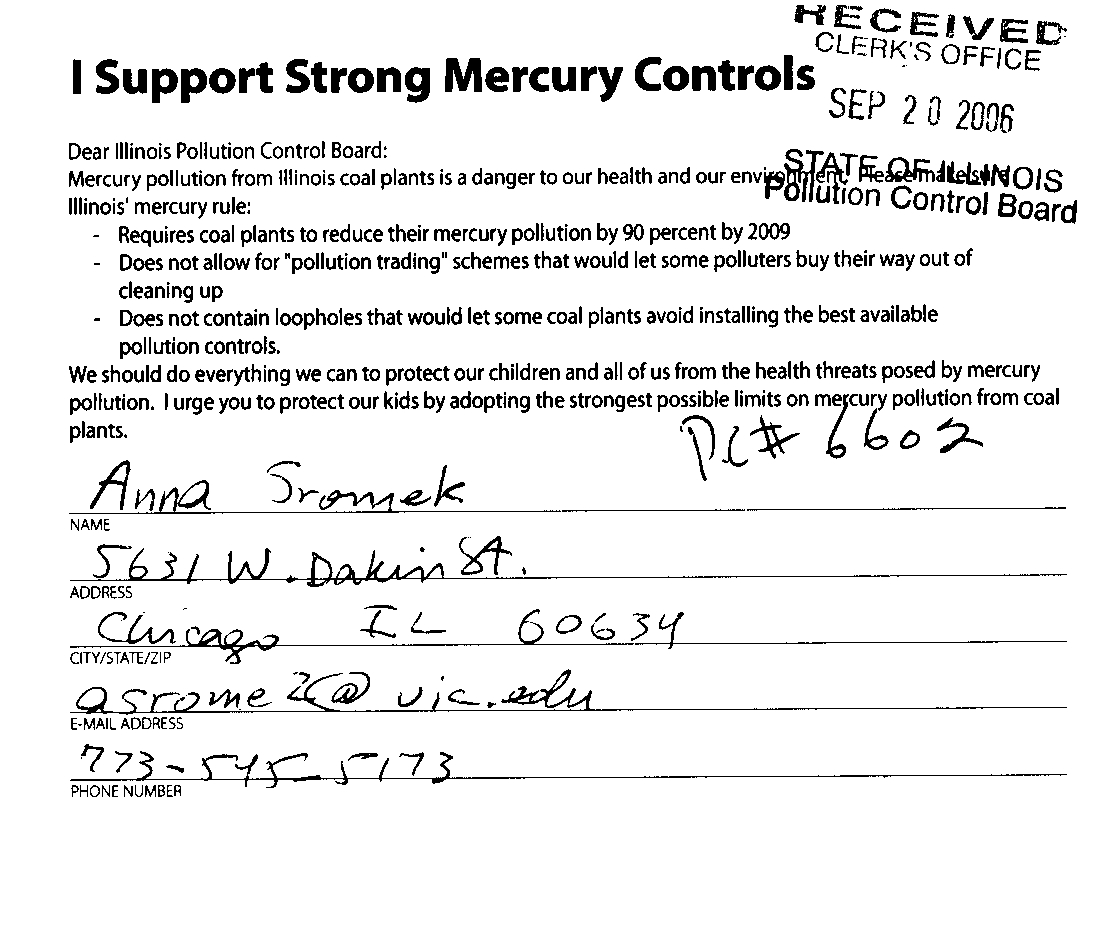 RECEIVED
CLERK'S OFFICE
I Support Strong Mercury Controls
SEP 20 2006
Dear Illinois Pollution Control Board:
STATE OF ILLINOIS
Pollution Control Board
Mercury pollution from Illinois coal plants is a danger to our health and our environment. Please make sure
Illinois' mercury rule:
- Requires coal plants to reduce their mercury pollution by 90 percent by 2009
- Does not allow for "pollution trading" schemes that would let some polluters buy their way out of
cleaning up
- Does not contain loopholes that would let some coal plants avoid installing the best available
pollution controls.
We should do everything we can to protect our children and all of us from the health threats posed by mercury
pollution. I urge you to protect our kids by adopting the strongest possible limits on mercury pollution from coal
plants.
PC# 6602
Anna Sromek
NAME
5631 W. Dakin St.
ADDRESS
Chicago IL 60634
CITY/STATE/ZIP
asrome2@uic.edu
E-MAIL ADDRESS
773-545-5173
PHONE NUMBER